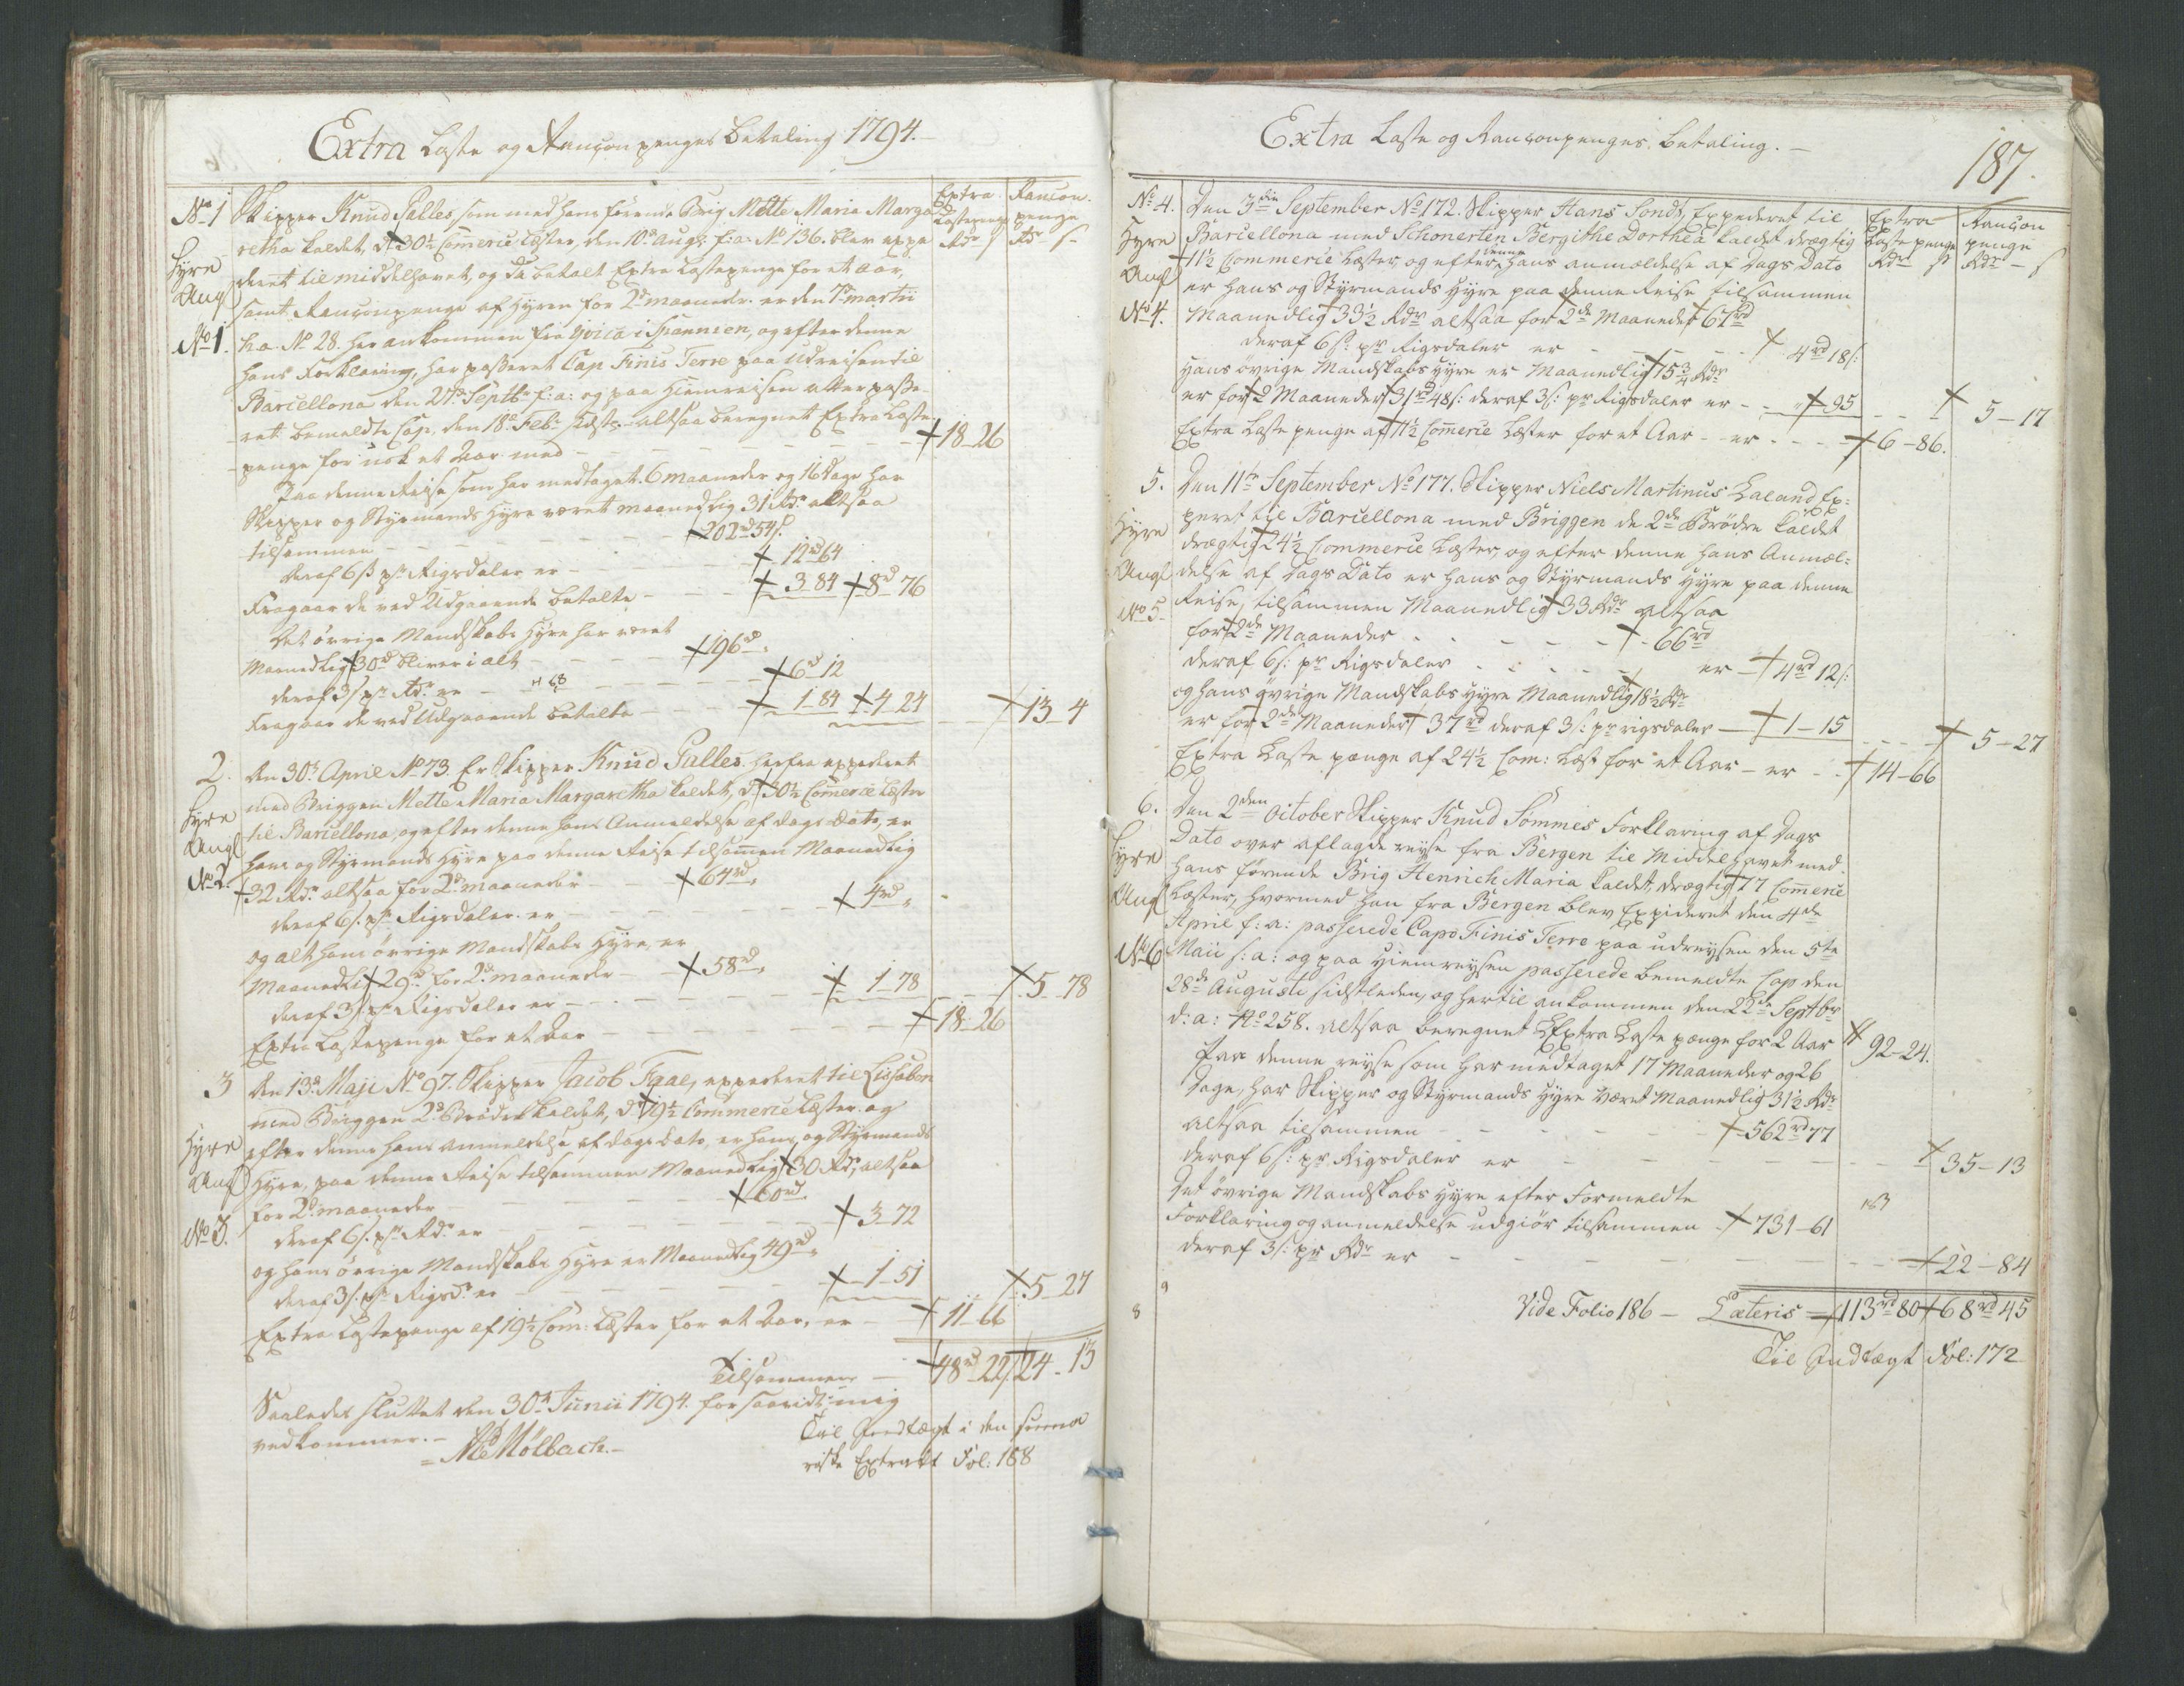 Extra Laste og Rançonpenges Betaling 1794.
Extra Lastepenge Rdr s
Rançon penge Rdr s
No 1 Skipper Knud Palles, som med hans förende Brig Mette Maria Marga
retha kaldet, d. 30½ Comerce Læster, den 10de Augs: f: a: No 136. blev expe
Hyre deret til Middelhavet, og da betalt Extra Lastepenge for et Aar,
Angl samt Rançonpenge af Hyren for 2de maaneder. er den 7de Martii
No 1. h. a. No 28. her ankommen fra Yvica i Spannien, og efter denne
hans Forklaring, har passeret Cap Finis Terre paa Udreisen til
Barcellona den 27de Septbr f: a: og paa Hiemreisen atter passe-
ret bemeldte Cap, den 18de Febr sidst, altsaa beregnet Extra Laste-
penge for nok et Aar med - 18-26
Paa denne Reise som har medtaget 6 Maaneder og 16 Dage har
Skipper og Styrmands Hyre været maanedlig 31 Rdr altsaa
tilsammen - 202rd 54s.
deraf 6s pr Rigsdaler er - 12rd 64
Fragaar de ved Udgaaende betalte - 3 84 8rd 76
Det övrige Mandskabs Hyre har været
Maanedlig 30rd bliver i alt - 196rd
deraf 3s pr Rdr er - 6rd 12
Fragaar de ved Udgaaende betalte - 1-84 4-24 13-4
2. den 30te April No 73. Er Skipper Knud Palles herfra expederet
med Briggen Mette Maria Margaretha kaldet, d. 30½ Comerce Læster
Hyre til Barcellona, og efter denne hans Anmeldelse af Dags Dato, er
Angl hans og Styrmands Hyre paa denne Reise tilsamen Maanedlig
No 2. 32 Rdr altsaa for 2de maaneder - 64rd
deraf 6s. pr Rigsdaler er - 4rd
og alt hans övrige Mandskabs Hyre, er
Maanedlig 29rd for 2de maaneder - 58rd
deraf 3s pr Rigsdaler er - 1-78 5-78
Extra Lastepenge for et Aar - 18-26
3 den 13de Maji No 97. Skipper Jacob Faae, expederet til Lissabon
med Briggen 2de Brödre kaldet, d. 19½ Commerce Læster og
Hyre efter denne hans Anmeldelse af Dags Dato, er hans og Styrmands
Angl Hyre, paa denne Reise tilsammen Maanedlig 30 Rdr, altsaa
for 2de maaneder - 60rd
No 3. deraf 6s. pr Rdr er - 3-72
og hans övrige Mandskabs Hyre er Maanedlig 49rd
deraf 3s. pr Rigsd. er - 1-51 5-27
Extra Lastepenge af 19½ Com: Læster for et Aar, er - 11-66
Tilsammen - 48rd 22 24-13
Saaledes sluttet den 30te Junii 1794. forsaavidt mig
vedkommer. Mölbach.
Til Indtægt i den summa
riske Extract Fol: 188
Extra Laste og Rançonpenges Betaling.
187.
Extra Laste penge Rdr s
Rançon penge Rdr s
No 4. Den 3die September No 172. Skipper Hans Sonds, Expederet til
Hyre Barcellona med Schonerten Bergithe Dorthea kaldet drægtig
Angl 11½ Commerce Læster, og efter denne hans anmældelse af Dags Dato
er hans og Styrmands Hyre paa denne Reise tilsammen
No 4. Maanedlig 33½ Rdr altsaa for 2de Maaneder 67rd
deraf 6s: pr Rigsdaler er - 4rd 18s:
Hans övrige Mandskabs Hyre er Maanedlig 15¾ Rdr
er for 2 Maaneder 31rd 48s: deraf 3s: pr Rigsdaler er - 95 5-17
Extra Laste penge af 11½ Comerce Læster for et Aar - er - 6-86.
5. Den 11te September No 177. Skipper Niels Martinus Laland Ex:
peret til Barcellona med Briggen de 2de Brödre kaldet
Hyre drægtig 24½ Commerce Læster, og efter denne hans Anmæl:
Angl delse af Dags Dato er hans og Styrmands Hyre paa denne
No 5. Reise, tilsammen Maanedlig 33 Rdr altsaa
for 2de Maaneder - 66rd
deraf 6s: pr Rigsdaler - er - 4rd 12s:
og hans övrige Mandskabs Hyre Maanedlig 18½ Rdr
er for 2de Maaneder 37rd deraf 3s: pr rigsdaler - 1-15 5-27
Extra Laste penge af 24½ Com: Læst for et Aar - er - 14-66
6. Den 2den October Skipper Knud Sömmes Forklaring af Dags
Dato over aflagde reyse fra Bergen til Middelhavet med
Hyre hans förende Brig Henrich Maria kaldet, drægtig 77 Comerce
Angl Læster, hvormed han fra Bergen blev Expideret den 4de
April f: a: passerede Capo Finis Terre paa udreysen den 5te
No 6 Maii s: a: og paa Hiemreysen passerede bemeldte Cap den
28de Augusti sidstleden, og hertil ankommen den 22de Septbr
d: a: No 258. altsaa beregnet Extra Laste penge for 2 Aar 92-24.
Paa denne reyse som har medtaget 17 Maaneder og 26
Dage, har Skipper og Styrmands Hyre været Maanedlig 31½ Rdr
altsaa tilsammen - 562rd 77
deraf 6s: pr Rigsdaler er - 35-13
Det övrige Mandskabs Hyre efter Formeldte
Forklaring og anmeldelse udgiör tilsammen - 731-61
deraf 3s: pr Rdr er - 22-84
Vide Folio 186 - Lateris - 113rd 80 68rd 45
Til Indtægt Fol: 172